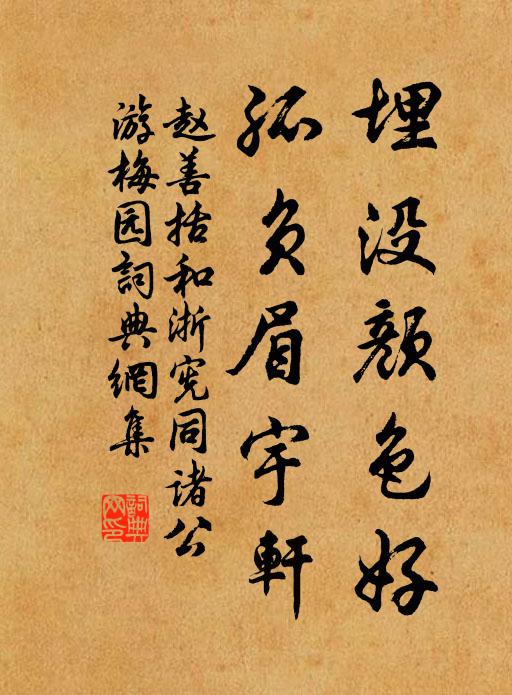 埋没颜色好
孤负眉宇軒
赵善括和浙宪同诸公
游梅园詞典網集
詞典
网印